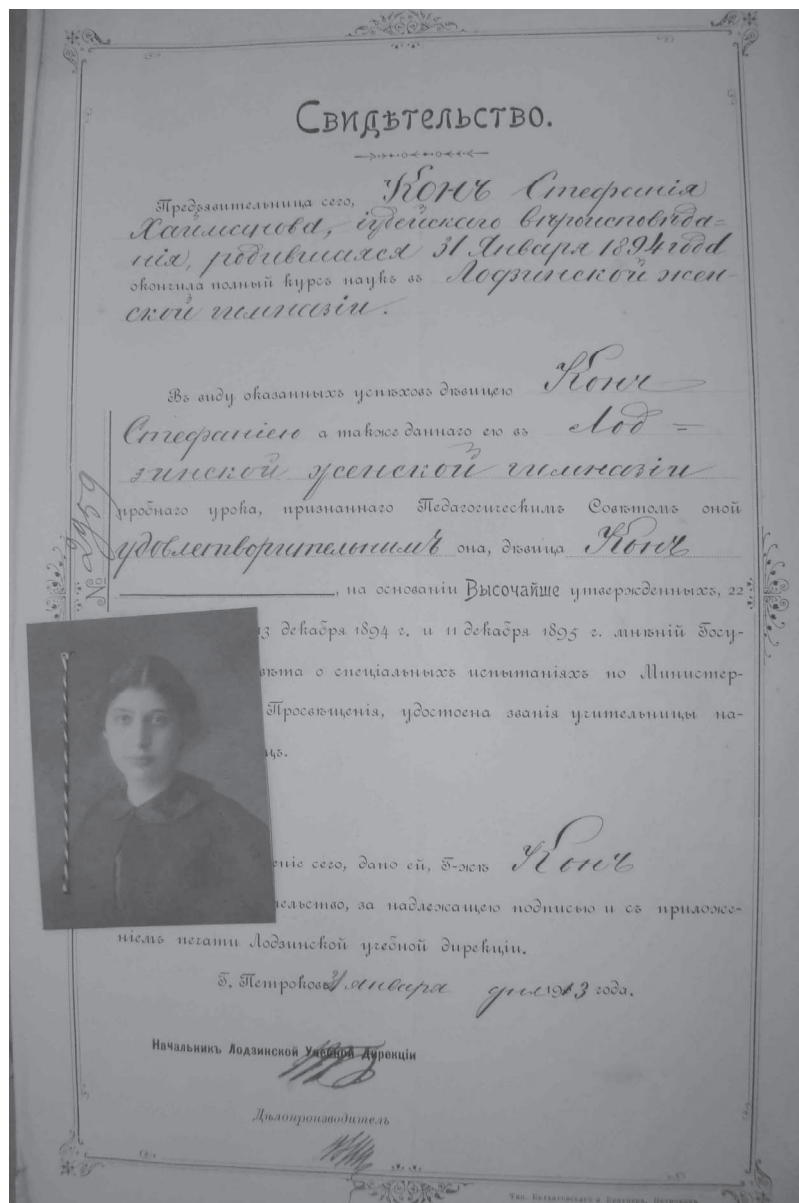 Свидѣтельство.
Предъявительница сего, Конъ Стефанія
Хаимовна, іудейскаго вѣроисповѣда=
нія, родившаяся 31 Января 1894 года
окончила полный курсъ наукъ въ Лодзинской жен-
ской гимназіи.
Въ виду оказанныхъ успѣховъ дѣвицею Конъ
Стефаніею а также даннаго ею въ Лод=
зинской женской гимназіи
пробнаго урока, признаннаго Педагогическимъ Совѣтомъ оной
удовлетворительнымъ она, дѣвица Конъ
, на основаніи Высочайше утвержденныхъ, 22
13 декабря 1894 г. и 11 декабря 1895 г. мнѣній Госу-
ѣта о спеціальныхъ испытаніяхъ по Министер-
Просвѣщенія, удостоена званія учительницы на-
цъ.
№ 2959
еніе сего, дано ей, Г-жѣ Конъ
ельство, за надлежащею подписью и съ приложе-
ніемъ печати Лодзинской учебной дирекціи.
Г. Петроковъ 31 января дня 1913 года.
Начальникъ Лодзинской Учебной Дирекціи
Дѣлопроизводитель